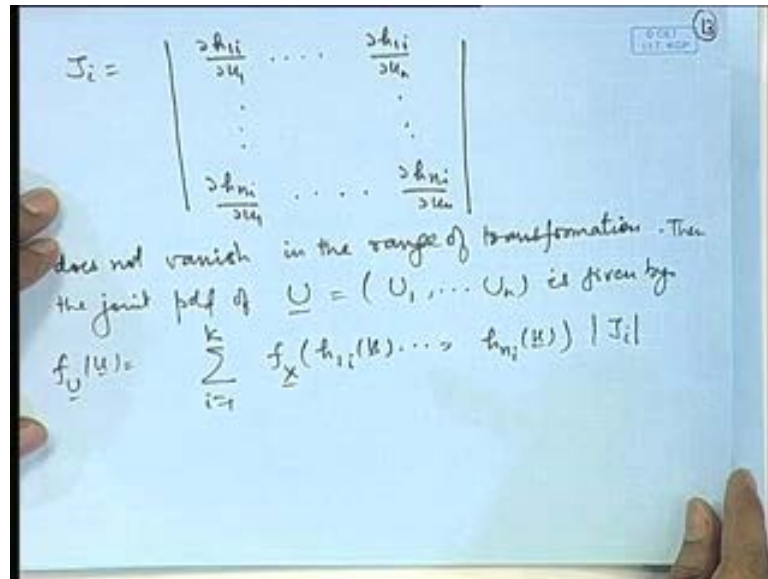 13
J_i = | ∂h_{1i}/∂u_1 .... ∂h_{1i}/∂u_n |
| ∂h_{ni}/∂u_1 .... ∂h_{ni}/∂u_n |
does not vanish in the range of transformation. Then
the joint pdf of U = (U_1, ... U_n) is given by
f_U(u) = Σ_{i=1}^{k} f_X(h_{1i}(u) ..., h_{ni}(u)) |J_i|